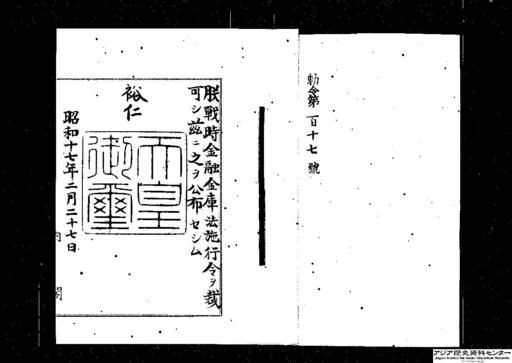 勅令第百十七號
朕戰時金融金庫法施行令ヲ裁
可シ茲ニ之ヲ公布セシム
裕仁
天皇
御璽
昭和十七年二月二十七日
内閣
アジア歴史資料センター
Japan Center for Asian Historical Records